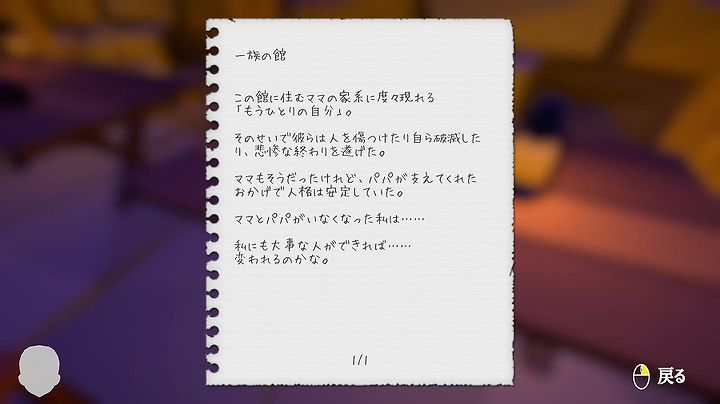 一族の館
この館に住むママの家系に度々現れる
「もうひとりの自分」。
そのせいで彼らは人を傷つけたり自ら破滅した
り、悲惨な終わりを遂げた。
ママもそうだったけれど、パパが支えてくれた
おかげで人格は安定していた。
ママとパパがいなくなった私は……
私にも大事な人ができれば……
変われるのかな。
1/1
戻る